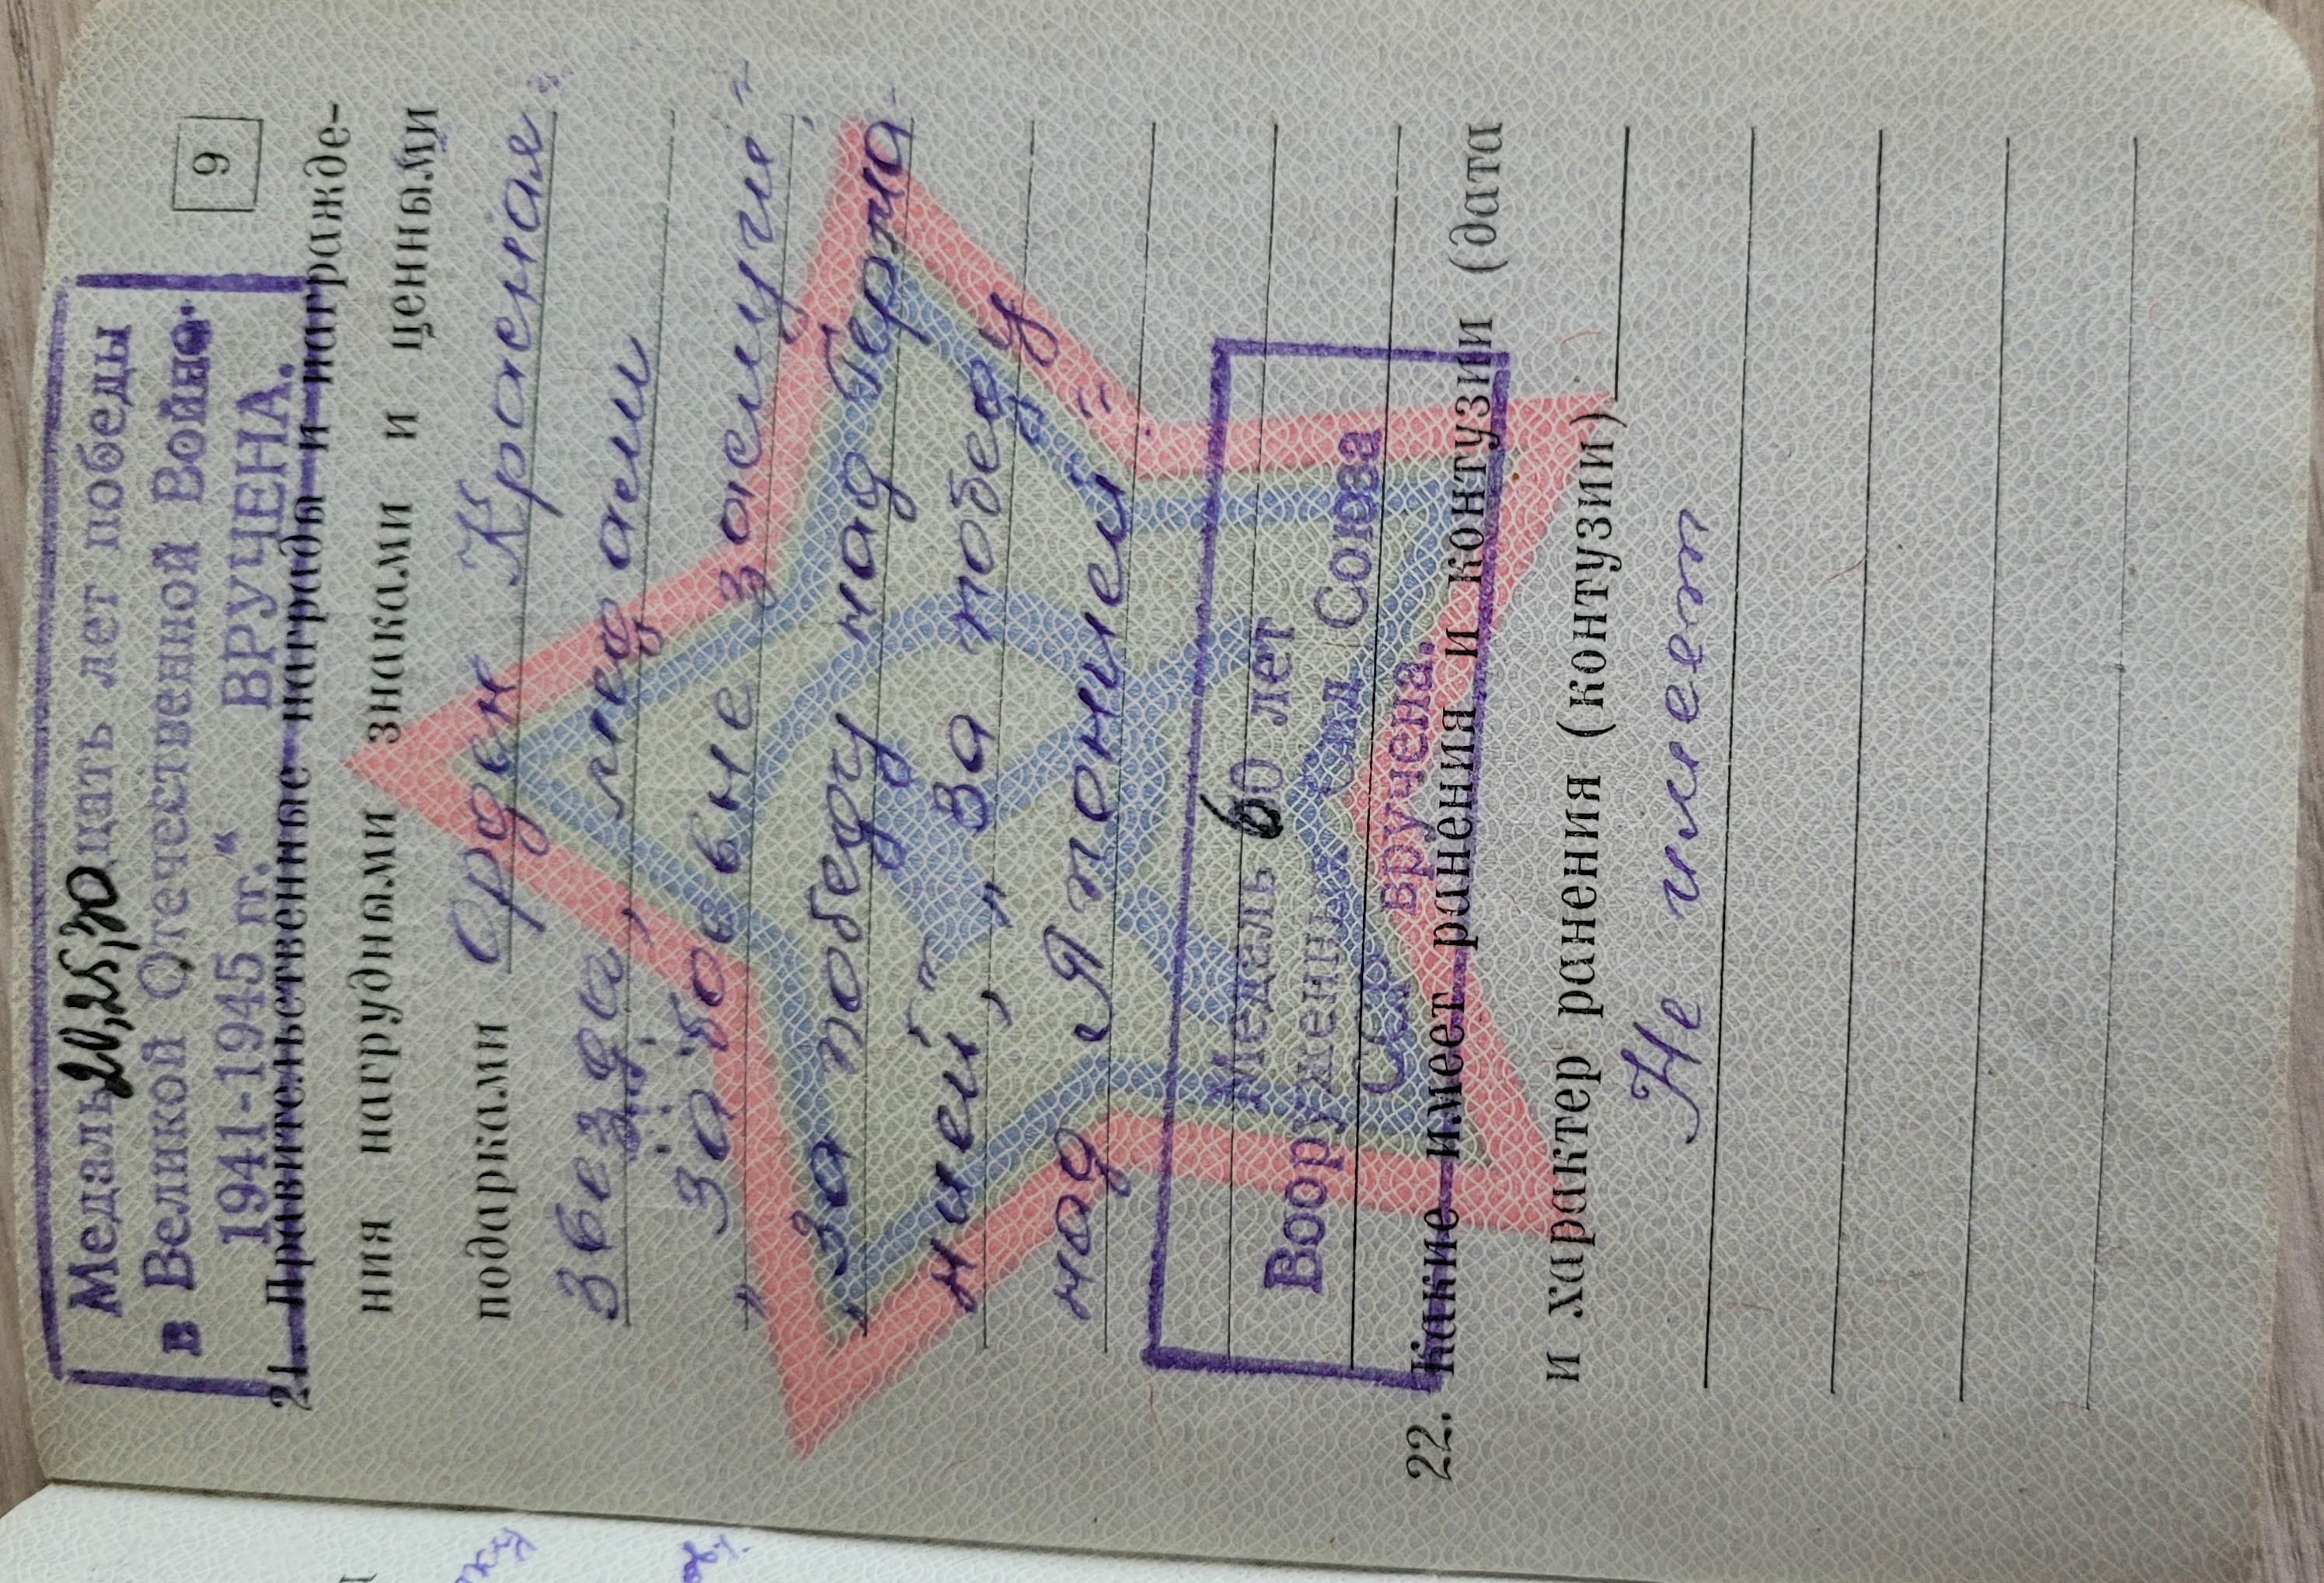 9
Медаль 20, 25, 30 цать лет победы
в Великой Отечественной Войне
1941-1945 гг." ВРУЧЕНА.
21. Правительственные награды и награжде-
ния нагрудными знаками и ценными
подарками Орден Красная
Звезда, медали
"За боевые заслуги"
"За победу над Герма
нией", "За победу
над Японией"
Медаль 60 лет
Вооруженных Сил Союза
ССР вручена.
22. Какие имеет ранения и контузии (дата
и характер ранения (контузии)
Не имеет